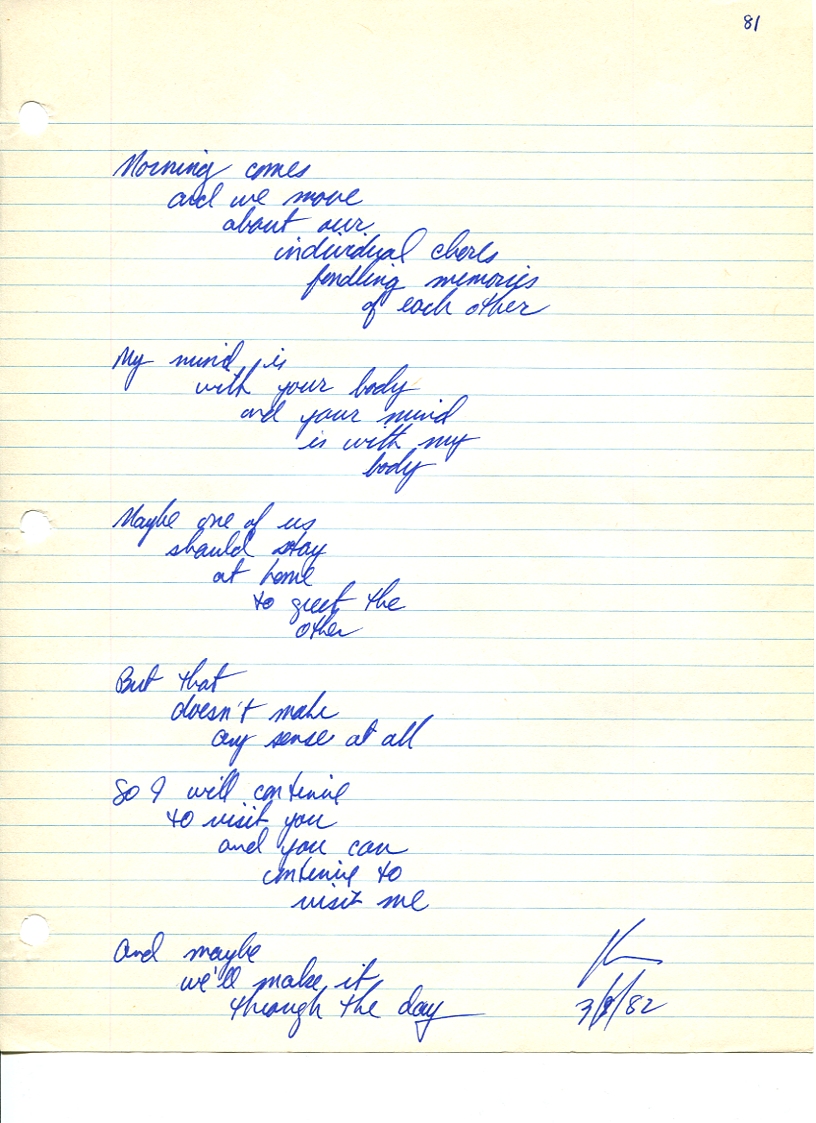 81
Morning comes
and we move
about our
individual chores
fondling memories
of each other
My mind is
with your body
and your mind
is with my
body
Maybe one of us
should stay
at home
to greet the
other
But that
doesn't make
any sense at all
So I will continue
to visit you
and you can
continue to
visit me
And maybe
we'll make it
through the day
3/9/82